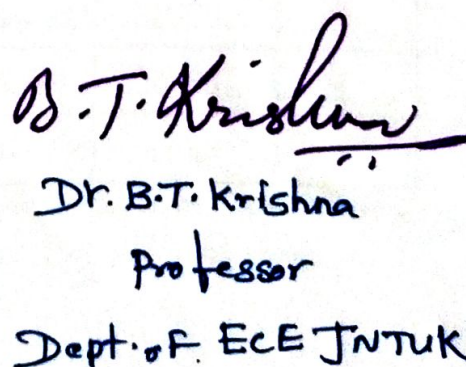 B.T. Krishna
Dr. B.T. Krishna
Professor
Dept. of ECE JNTUK